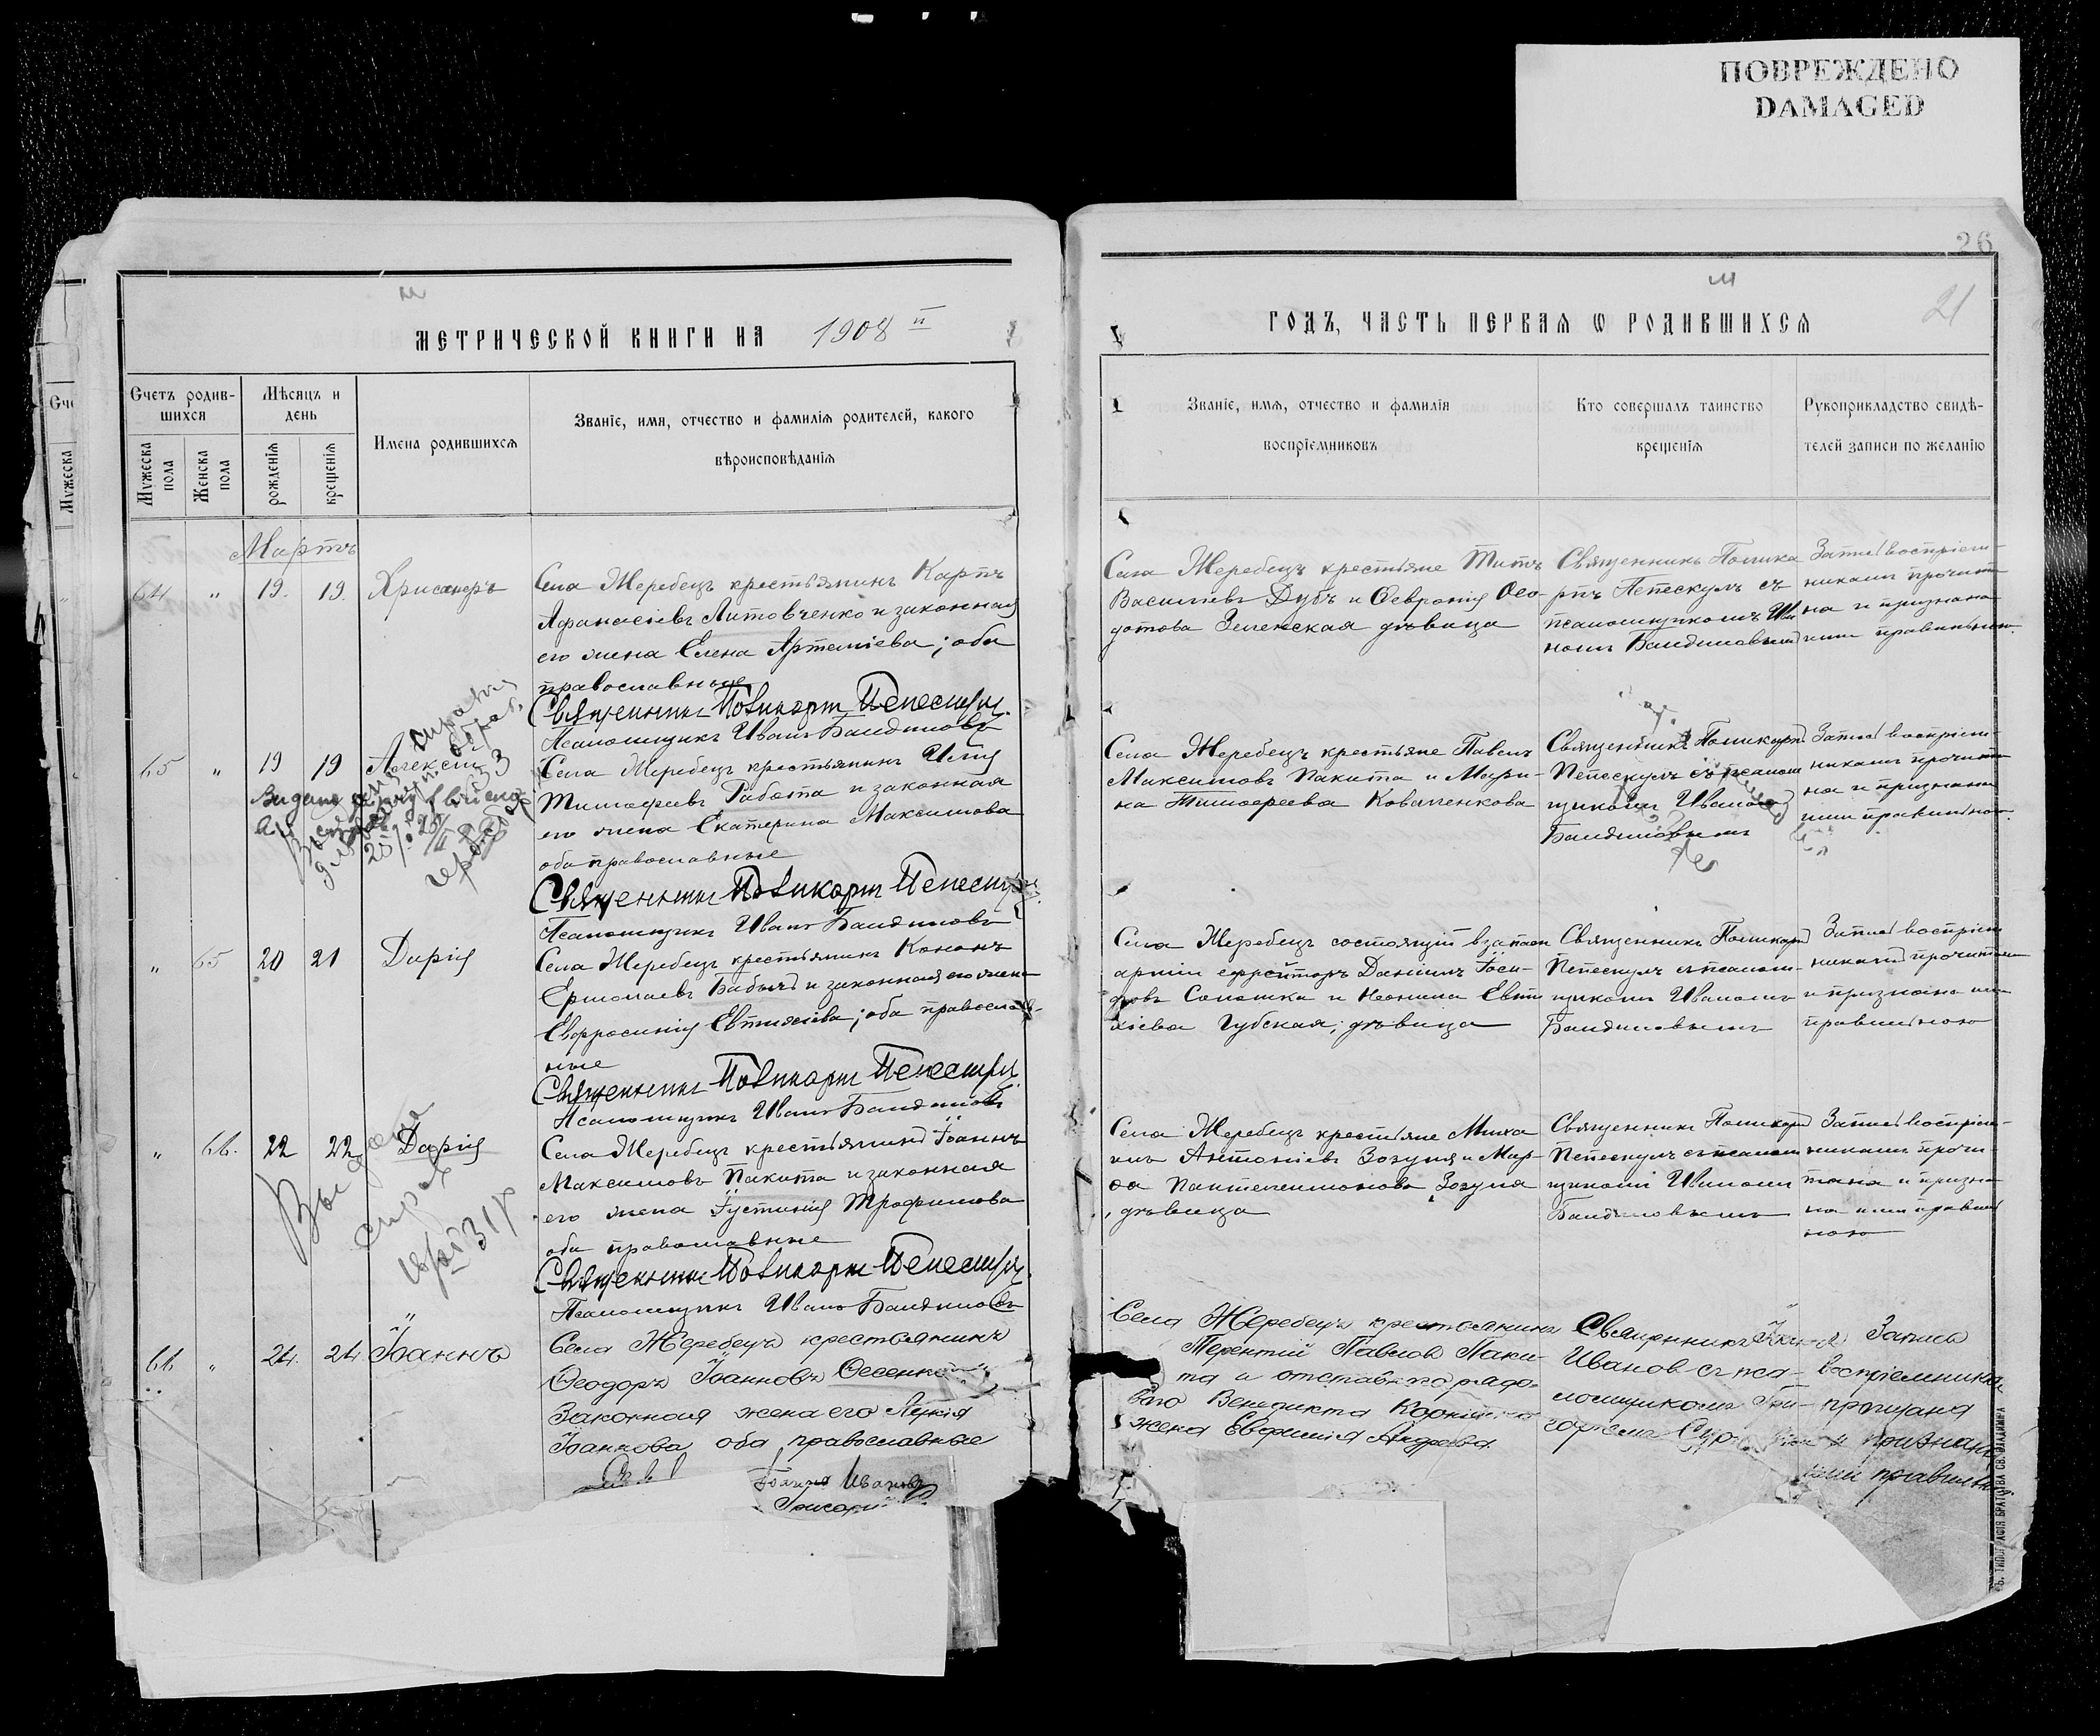 ПОВРЕЖДЕНО
DAMAGED
26
21
МЕТРИЧЕСКОЙ КНИГИ НА 1908 й
ГОДЪ, ЧАСТЬ ПЕРВАЯ Ѡ РОДИВШИХСЯ
Счетъ родив-
шихся
Мужеска
пола
Женска
пола
Мѣсяцъ и
день
рожденія
крещенія
Имена родившихся
Званіе, имя, отчество и фамилія родителей, какого
вѣроисповѣданія
Званіе, имя, отчество и фамилія
воспріемниковъ
Кто совершалъ таинство
крещенія
Рукоприкладство свидѣ-
телей записи по желанію
Мартъ
64 " 19. 19.
Села Жеребецъ крестьянинъ Карпъ
Афанасіевъ Литовченко и законная
его жена Елена Артеміева; оба
православные
Священникъ Поликарп Пепескул
Псаломщикъ Иванъ Бандиловъ
Села Жеребецъ крестьяне Титъ
Васильевъ Дубъ и Февронія Ѳео-
дотова Зеленская дѣвица
Священникъ Полика
рпъ Пепескулъ съ
псаломщикомъ Ива
номъ Бандиловымъ
Запись воспріем-
никами прочита
на и признана
ими правильною.
65 " 19 19 Алексѣй
Села Жеребецъ крестьянинъ Илія
Тимофеевъ Работа и законная
его жена Екатерина Максимова
оба православные
Священникъ Поликарп Пепескул
Псаломщикъ Иванъ Бандиловъ
Села Жеребецъ крестьяне Павелъ
Максимовъ Пакита и Мари-
на Тимофеева Коваленкова
Священникъ Поликарпъ
Пепескулъ съ псалом
щикомъ Иваномъ
Бандиловымъ
Запись воспріем-
никами прочита
на и признана
ими правильною.
" 65 20 21 Дарія
Села Жеребецъ крестьянинъ Кононъ
Ермолаевъ Бабычъ и законная его жена
Евфросинія Евтихіева; оба православ-
ные
Священникъ Поликарп Пепескул
Псаломщикъ Иванъ Бандиловъ
Села Жеребецъ состоящій въ запасѣ
арміи ефрейторъ Даніилъ Іоси-
фовъ Соломка и Неонила Евти
хіева Губская; дѣвица
Священникъ Поликарпъ
Пепескулъ съ псалом-
щикомъ Иваномъ
Бандиловымъ
Запись воспріем
никами прочитана
и признана ими
правильною
" 66. 22 22 Дарія
Выдана
Села Жеребецъ крестьянинъ Іоаннъ
Максимовъ Пакита и законная
его жена Іустинія Трофимова
оба православные
Священникъ Поликарп Пепескул
Псаломщикъ Иванъ Бандиловъ
Села Жеребецъ крестьяне Миха
илъ Антоніевъ Зозуля и Мар-
ѳа Пантелеимонова Зозуля
, дѣвица
Священникъ Поликарпъ
Пепескулъ съ псалом
щикомъ Иваномъ
Бандиловымъ
Запись воспріем-
никами прочи-
тана и призна-
на ими правиль
ною
66 " 24. 24 Іоаннъ
Села Жеребецъ крестьянинъ
Ѳеодоръ Іоанновъ Ѳесенко
Законная жена его Лукія
Іоаннова оба православные
Іоаннъ Ивановъ
Григорій
Села Жеребецъ крестьянинъ
Терентій Павлов Паки-
та и отставного рядо-
вого Венедикта
жена Евфимія Андреева.
Священникъ Іоаннъ
Иванов съ пса-
ломщикомъ Гри-
горіемъ
Запись
воспріемниками
прочитана
и признана
ими правильн